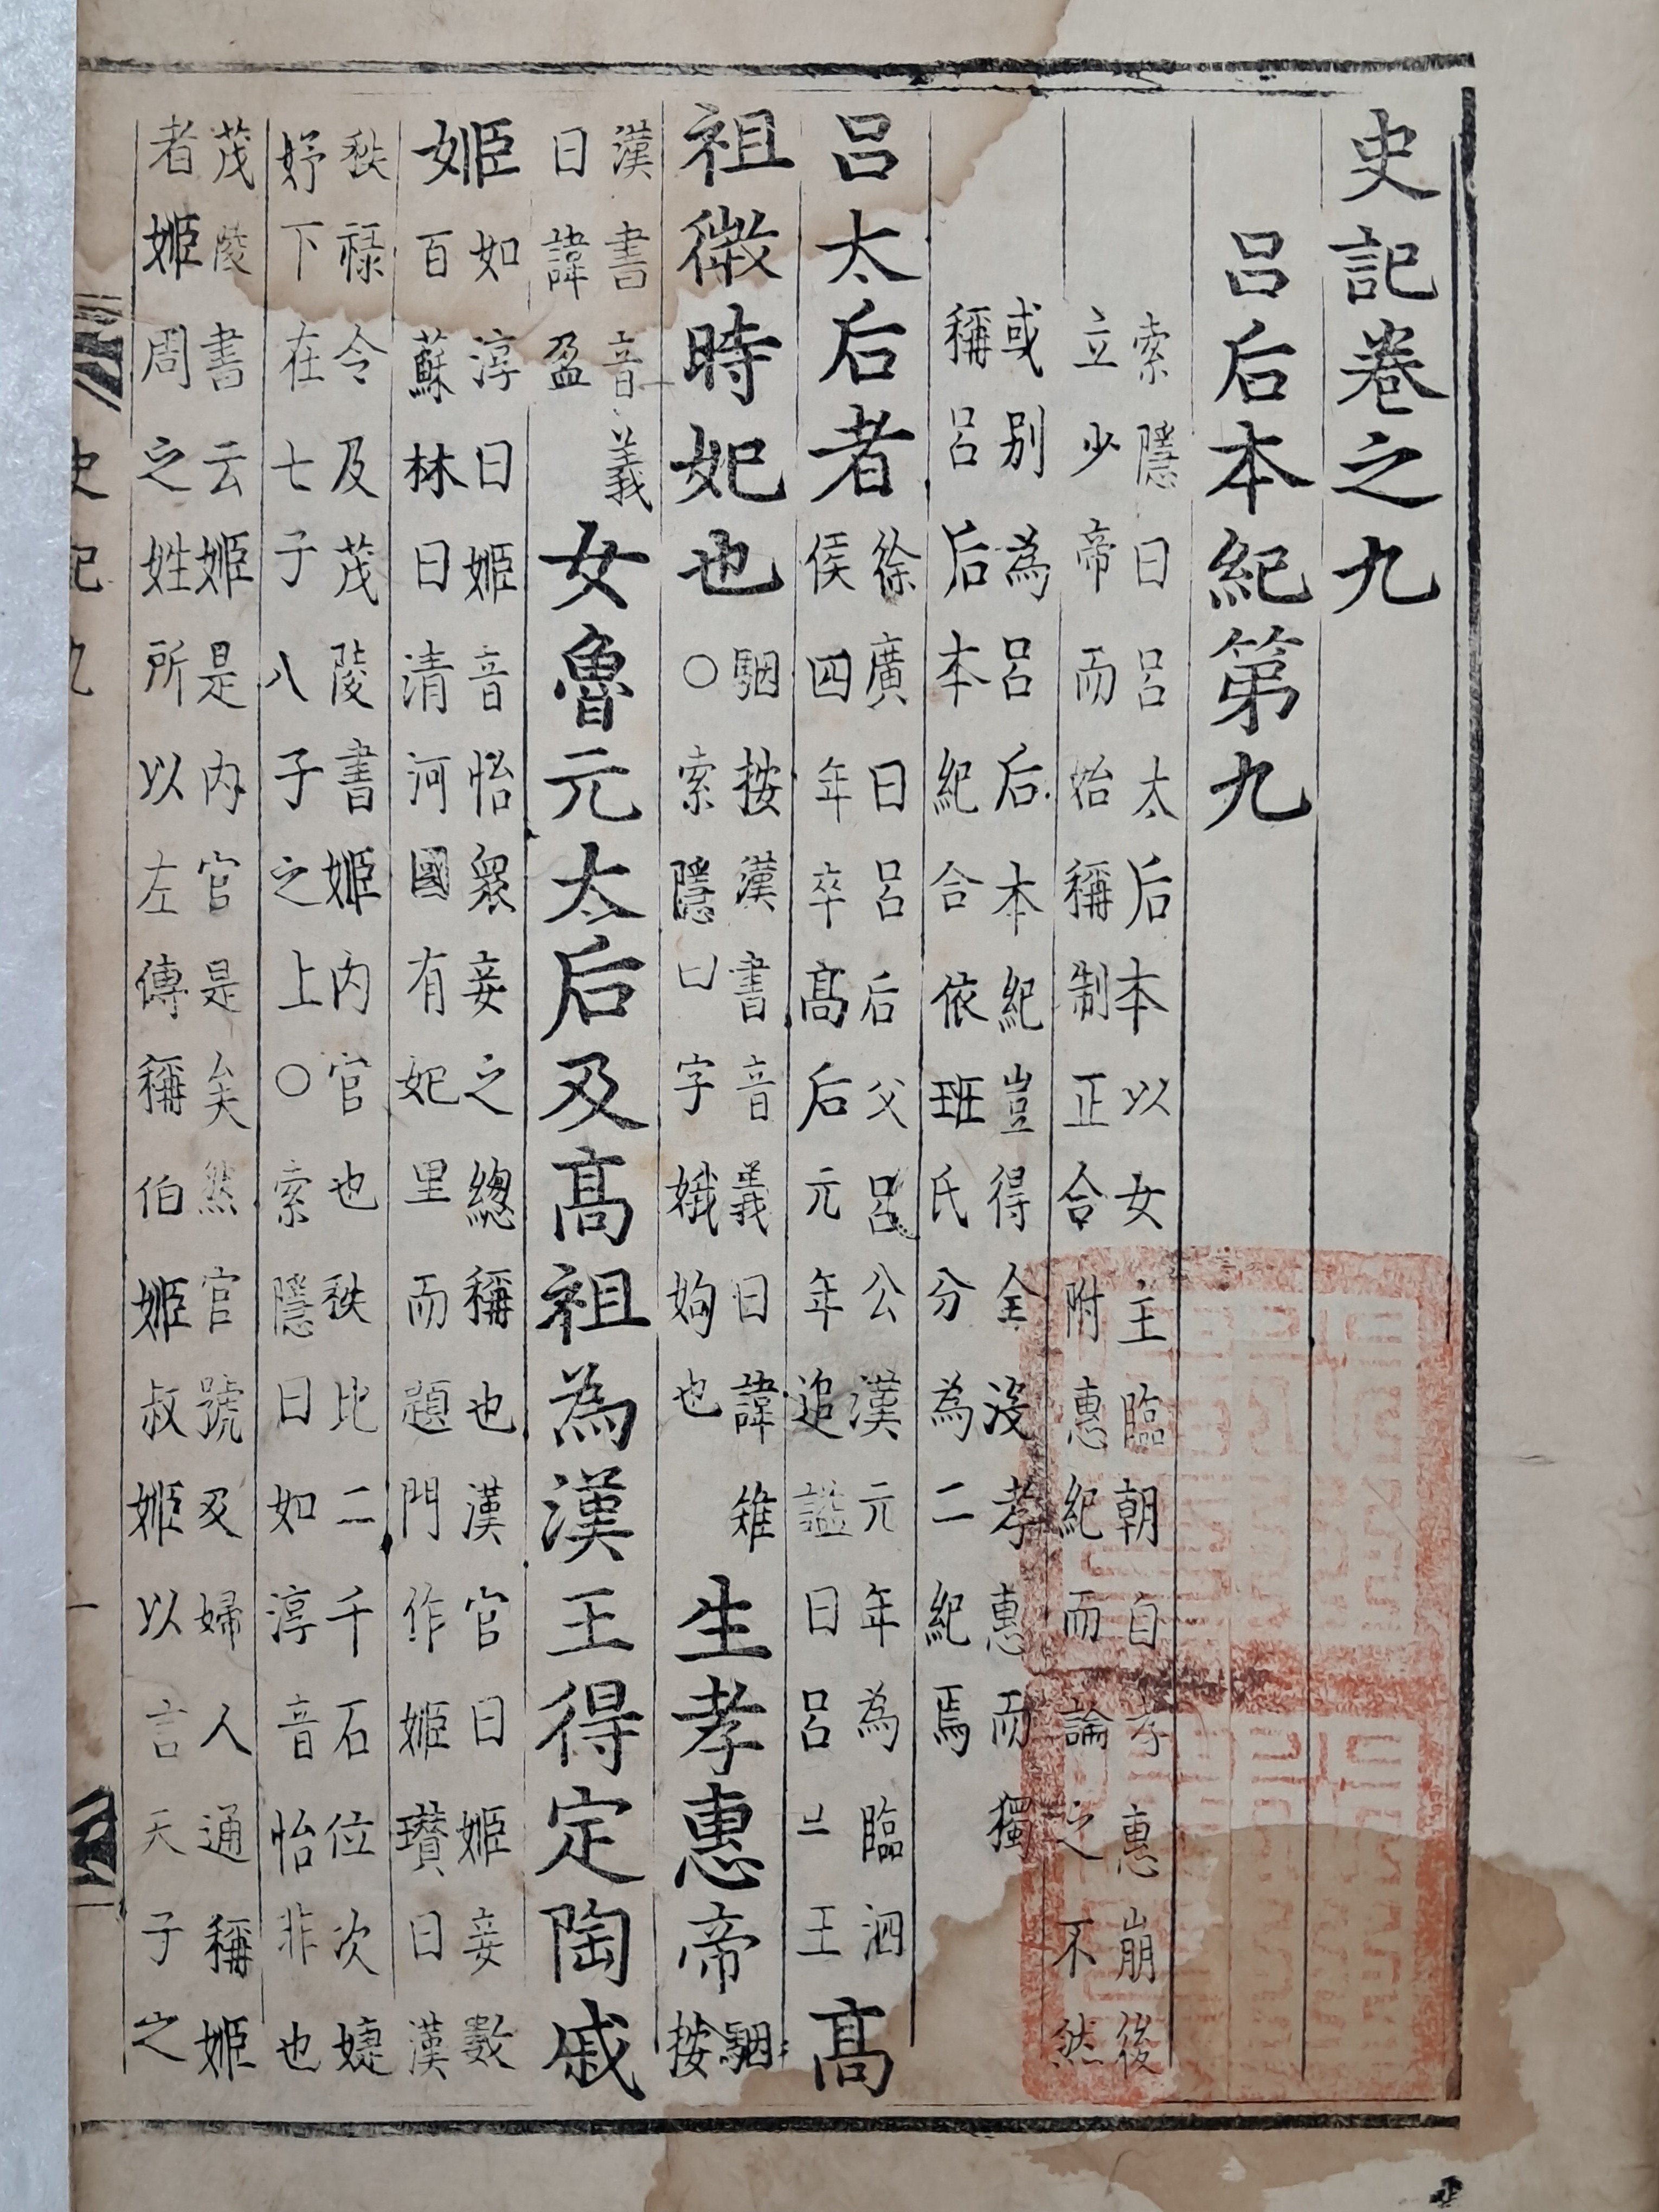 史記卷之九
吕后本紀第九
索隱曰吕太后本以女主臨朝自孝惠崩後
立少帝而始稱制正合附惠紀而論之不然
或别為吕后本紀豈得全没孝惠而獨
稱吕后本紀合依班氏分為二紀焉
吕太后者
徐廣曰吕后父吕公漢元年為臨泗
侯四年卒高后元年追謚曰吕王
高
祖微時妃也
駰按漢書音義曰諱雉
○索隱曰字娥姁也
生孝惠帝
駰
按
漢書音義
曰諱盈
女魯元太后及高祖為漢王得定陶戚
姬
如淳曰姬音怡衆妾之緫稱也漢官曰姬妾數
百蘇林曰清河國有妃里而題門作姬瓚曰漢
秩禄令及茂陵書姬内官也秩比二千石位次婕
妤下在七子八子之上○索隱曰如淳音怡非也
茂陵書云姬是内官是矣然官號及婦人通稱姬
者姬周之姓所以左傳稱伯姬叔姬以言天子之
史記九
一